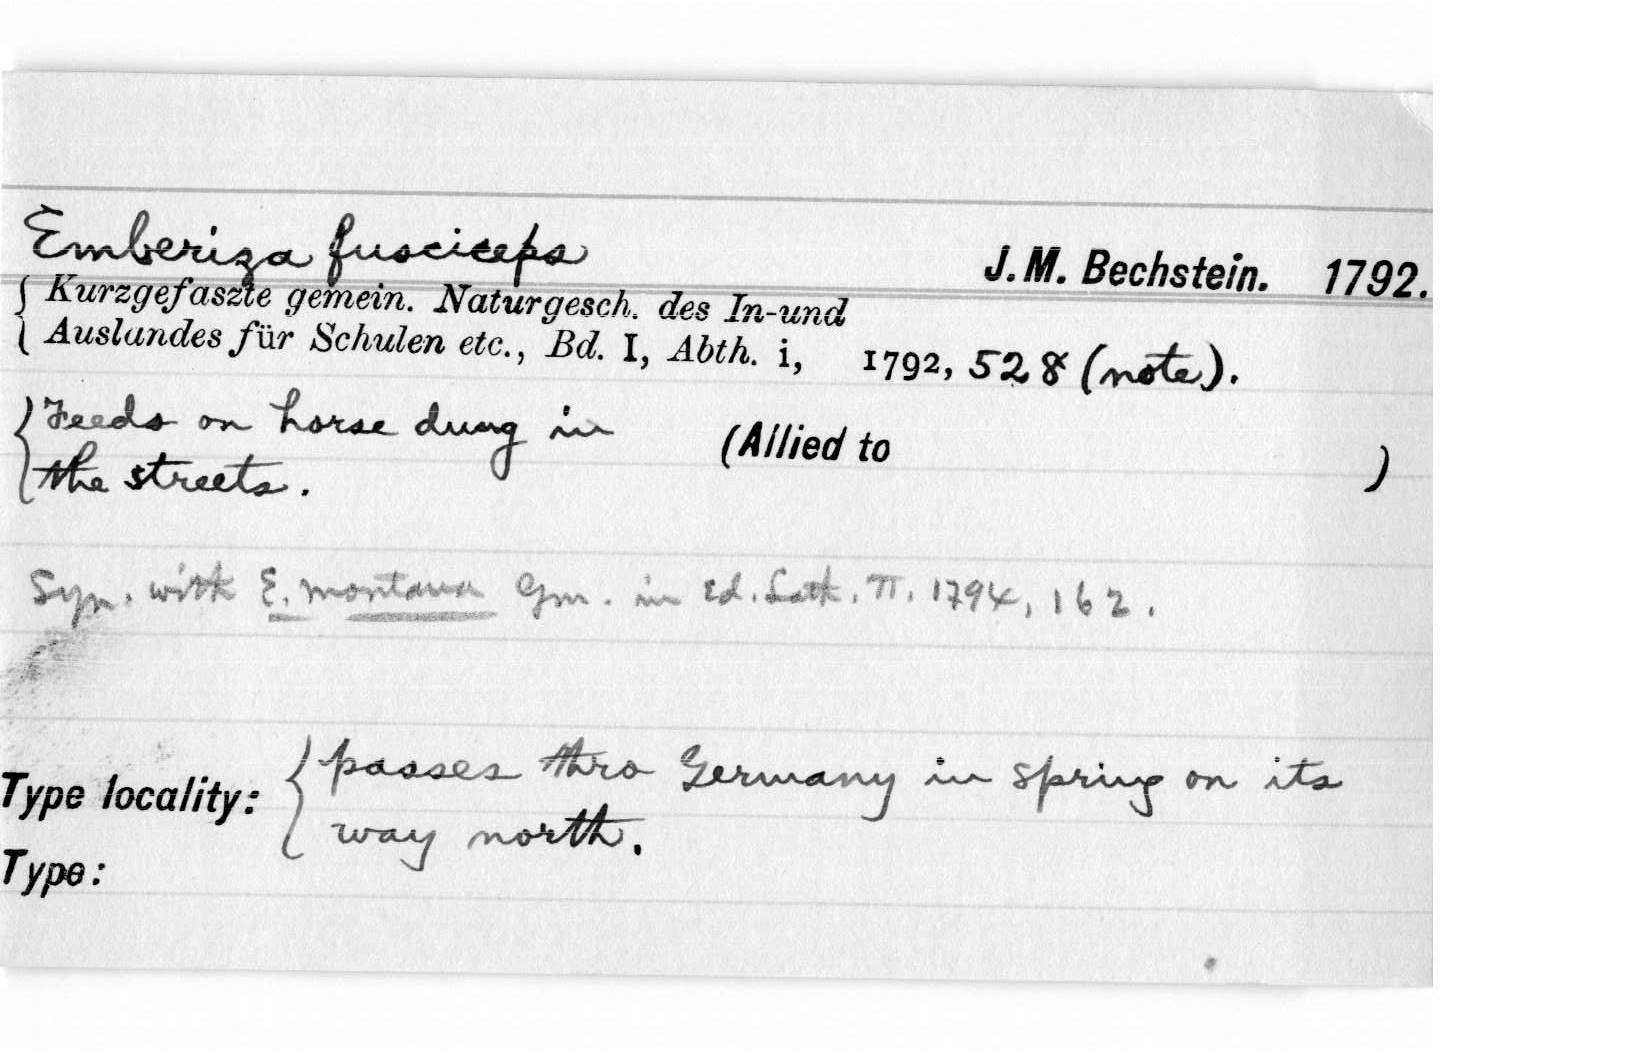 Emberiza fusciceps J. M. Bechstein. 1792.
Kurzgefaszte gemein. Naturgesch. des In-und
Auslandes für Schulen etc., Bd. I, Abth. i, 1792, 528 (note).
Feeds on horse dung in (Allied to )
the streets.
Syn. with E. montana Gm. in Ed. Lath. II. 1794, 162.
Type locality: passes thro Germany in spring on its
way north.
Type: